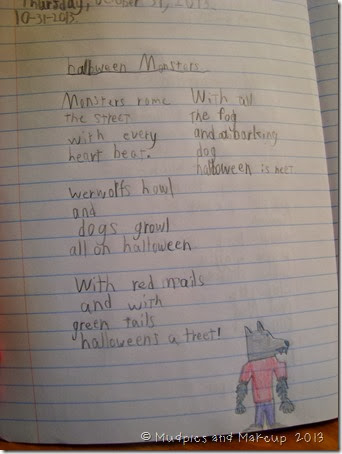 Thursday, October 31, 2013.
10-31-2013
halloween Monsters
Monsters rome
the street
with every
heart beat.
werwolfs howl
and
dogs growl
all on halloween
With red nails
and with
green tails
halloween's a treet!
With all
the fog
and a barking
dog
halloween is neet
© Mudpies and Makeup 2013